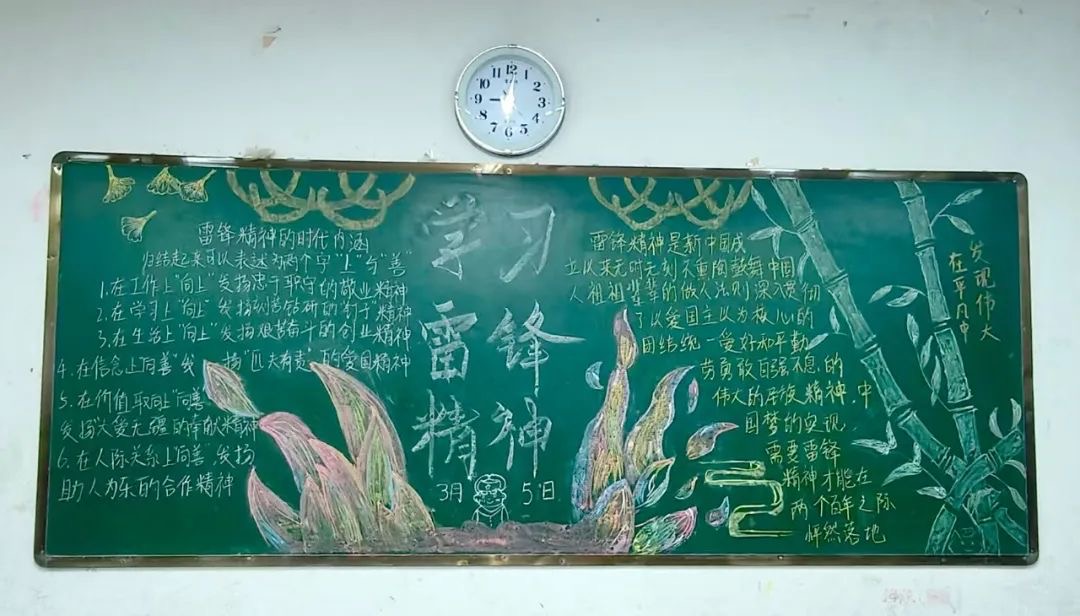 12
1
2
3
4
5
6
7
8
9
10
11
雷锋精神的时代内涵
归结起来可以表述为两个字"上"与"善"
1.在工作上"向上"发扬忠于职守的敬业精神
2.在学习上"向上"发扬刻苦钻研的钉子精神
3.在生活上"向上"发扬艰苦奋斗的创业精神
4.在信念上向善"发扬"匹夫有责"的爱国精神
5.在价值取向上"向善"
发扬大爱无疆的奉献精神
6.在人际关系上向善,发扬
助人为乐的合作精神
学习
雷锋
精神
3月 5日
雷锋精神是新中国成
立以来无时无刻不熏陶鼓舞中国
人祖祖辈辈的做人法则深入贯彻
了以爱国主义为核心的
团结统一爱好和平勤
劳勇敢自强不息的
伟大的民族精神.中
国梦的实现
需要雷锋
精神才能在
两个百年之际
怦然落地
发现伟大
在平凡中